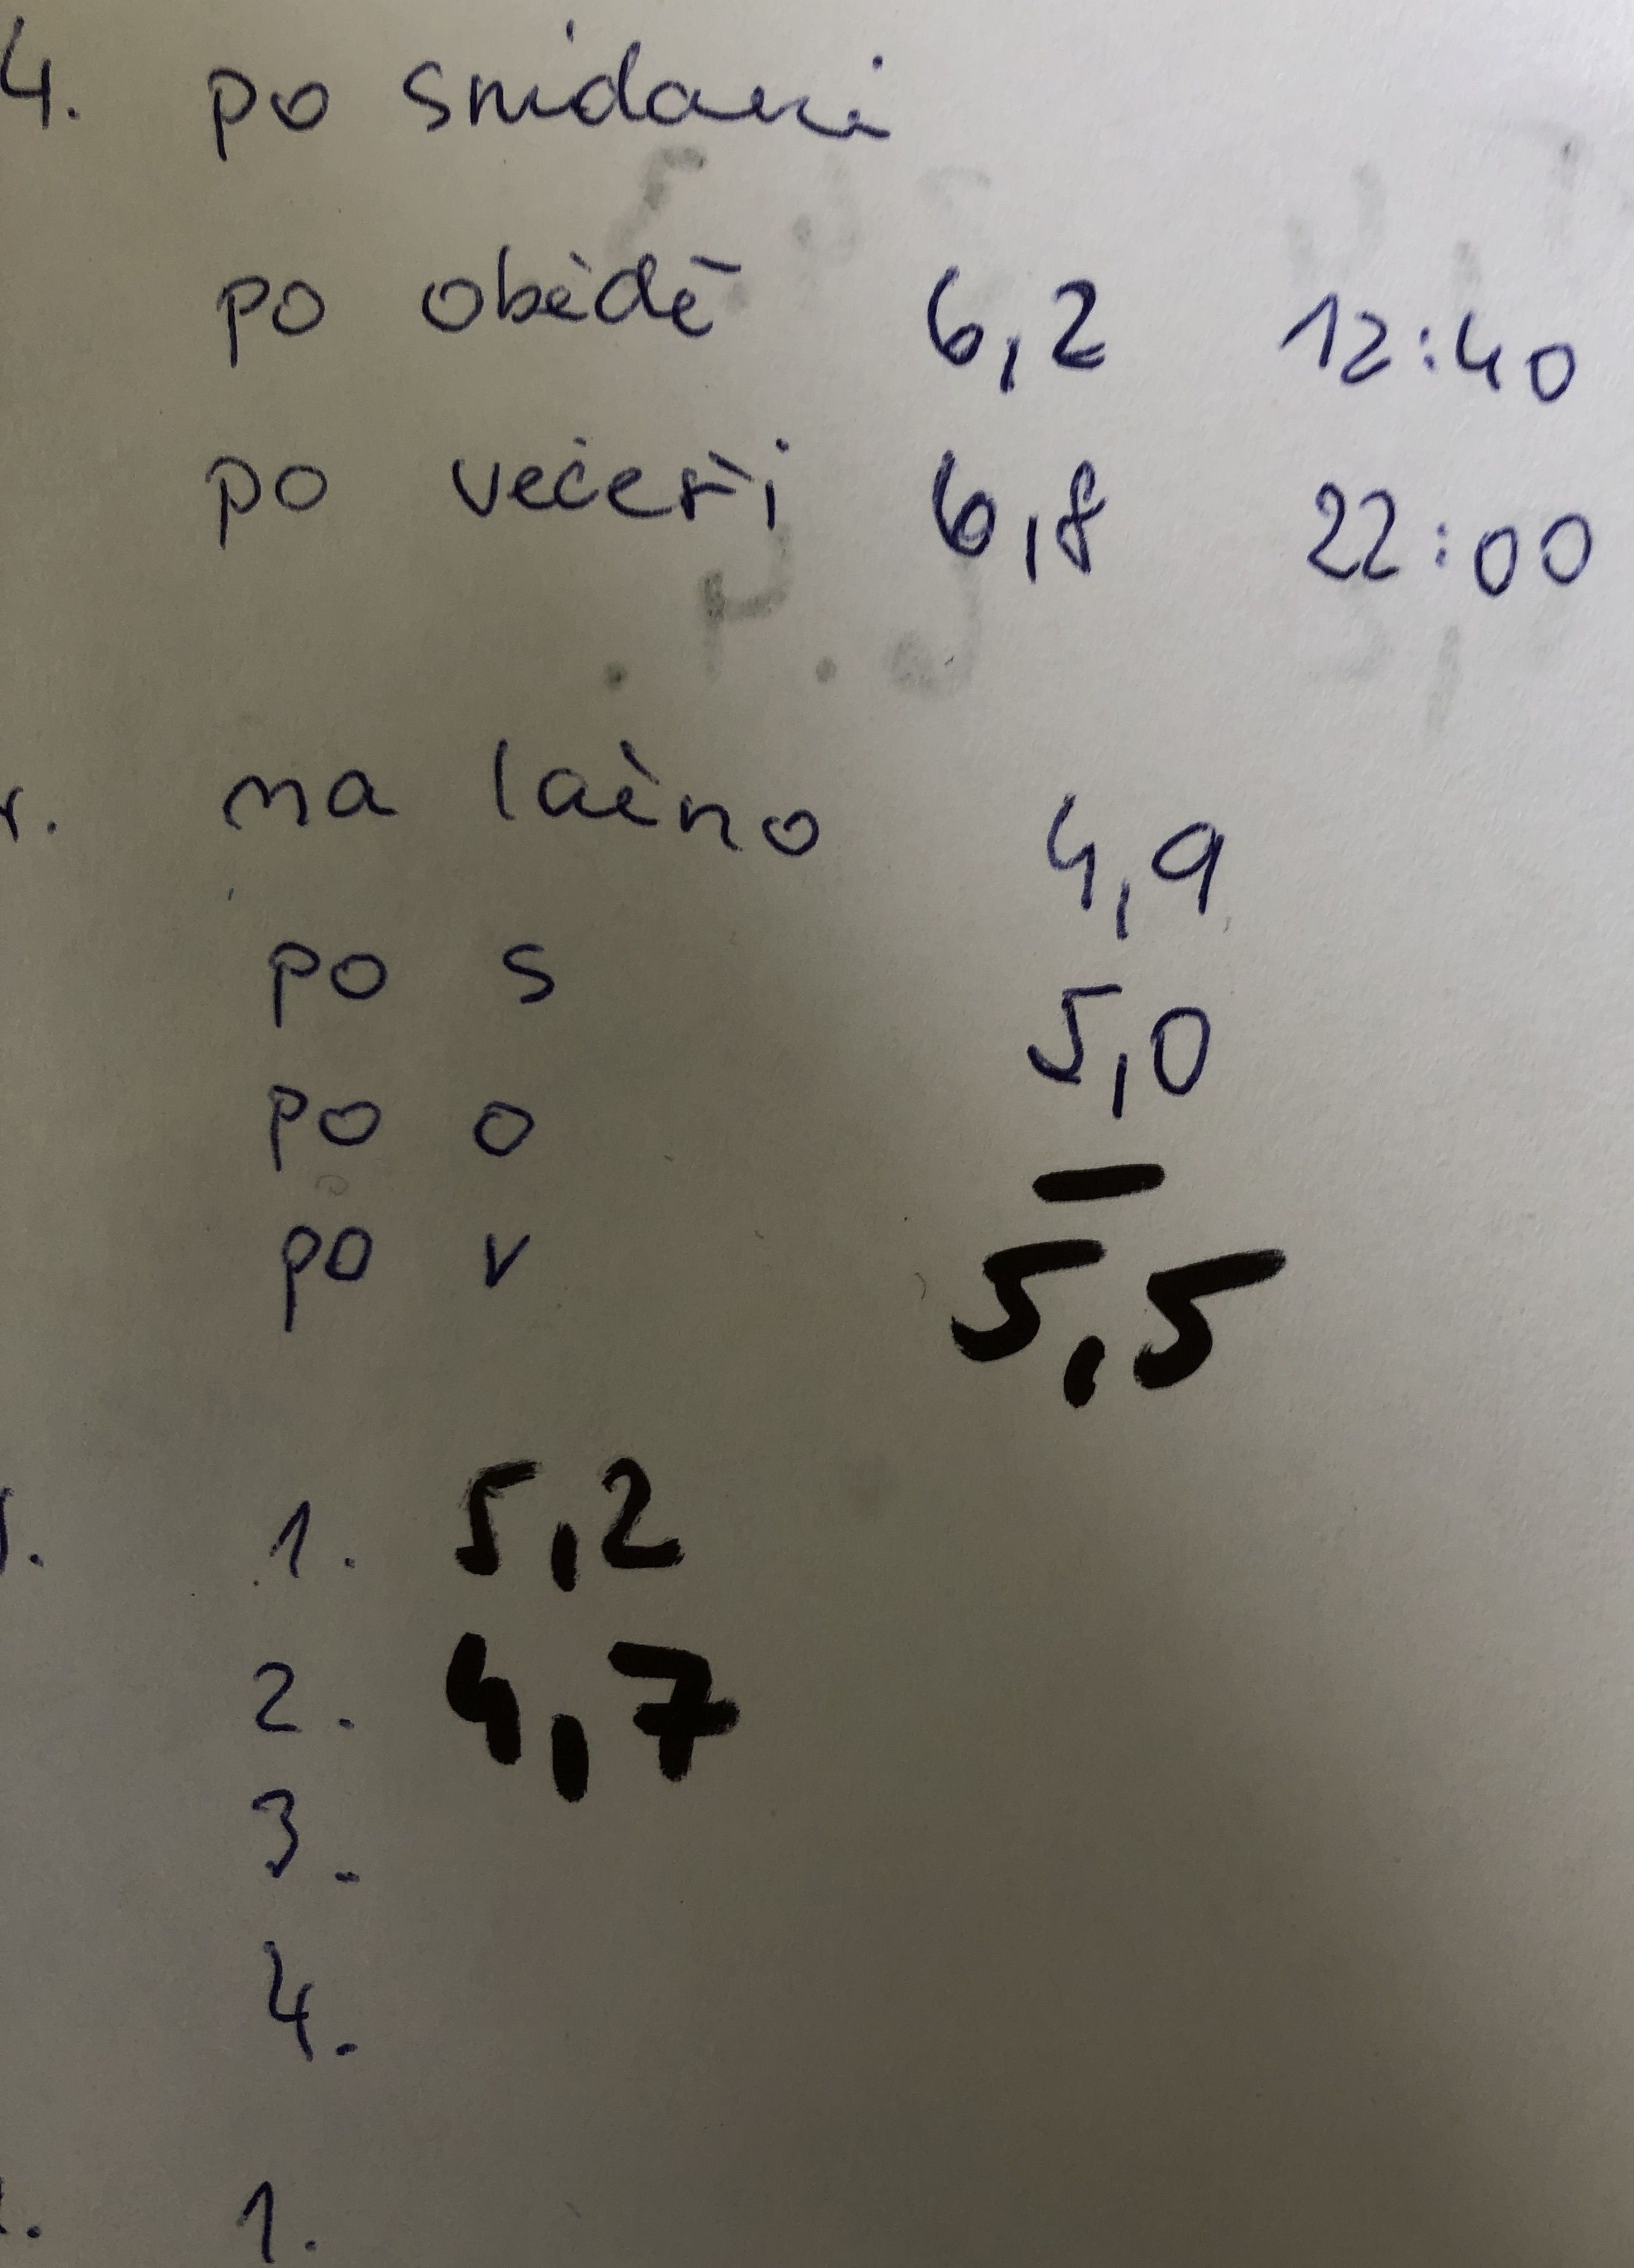 4. po snídani
po obědě 6,2 12:40
po večeři 6,8 22:00
na lačno 4,9
po s 5,0
po o –
po v 5,5
1. 5,2
2. 4,7
3.
4.
1.